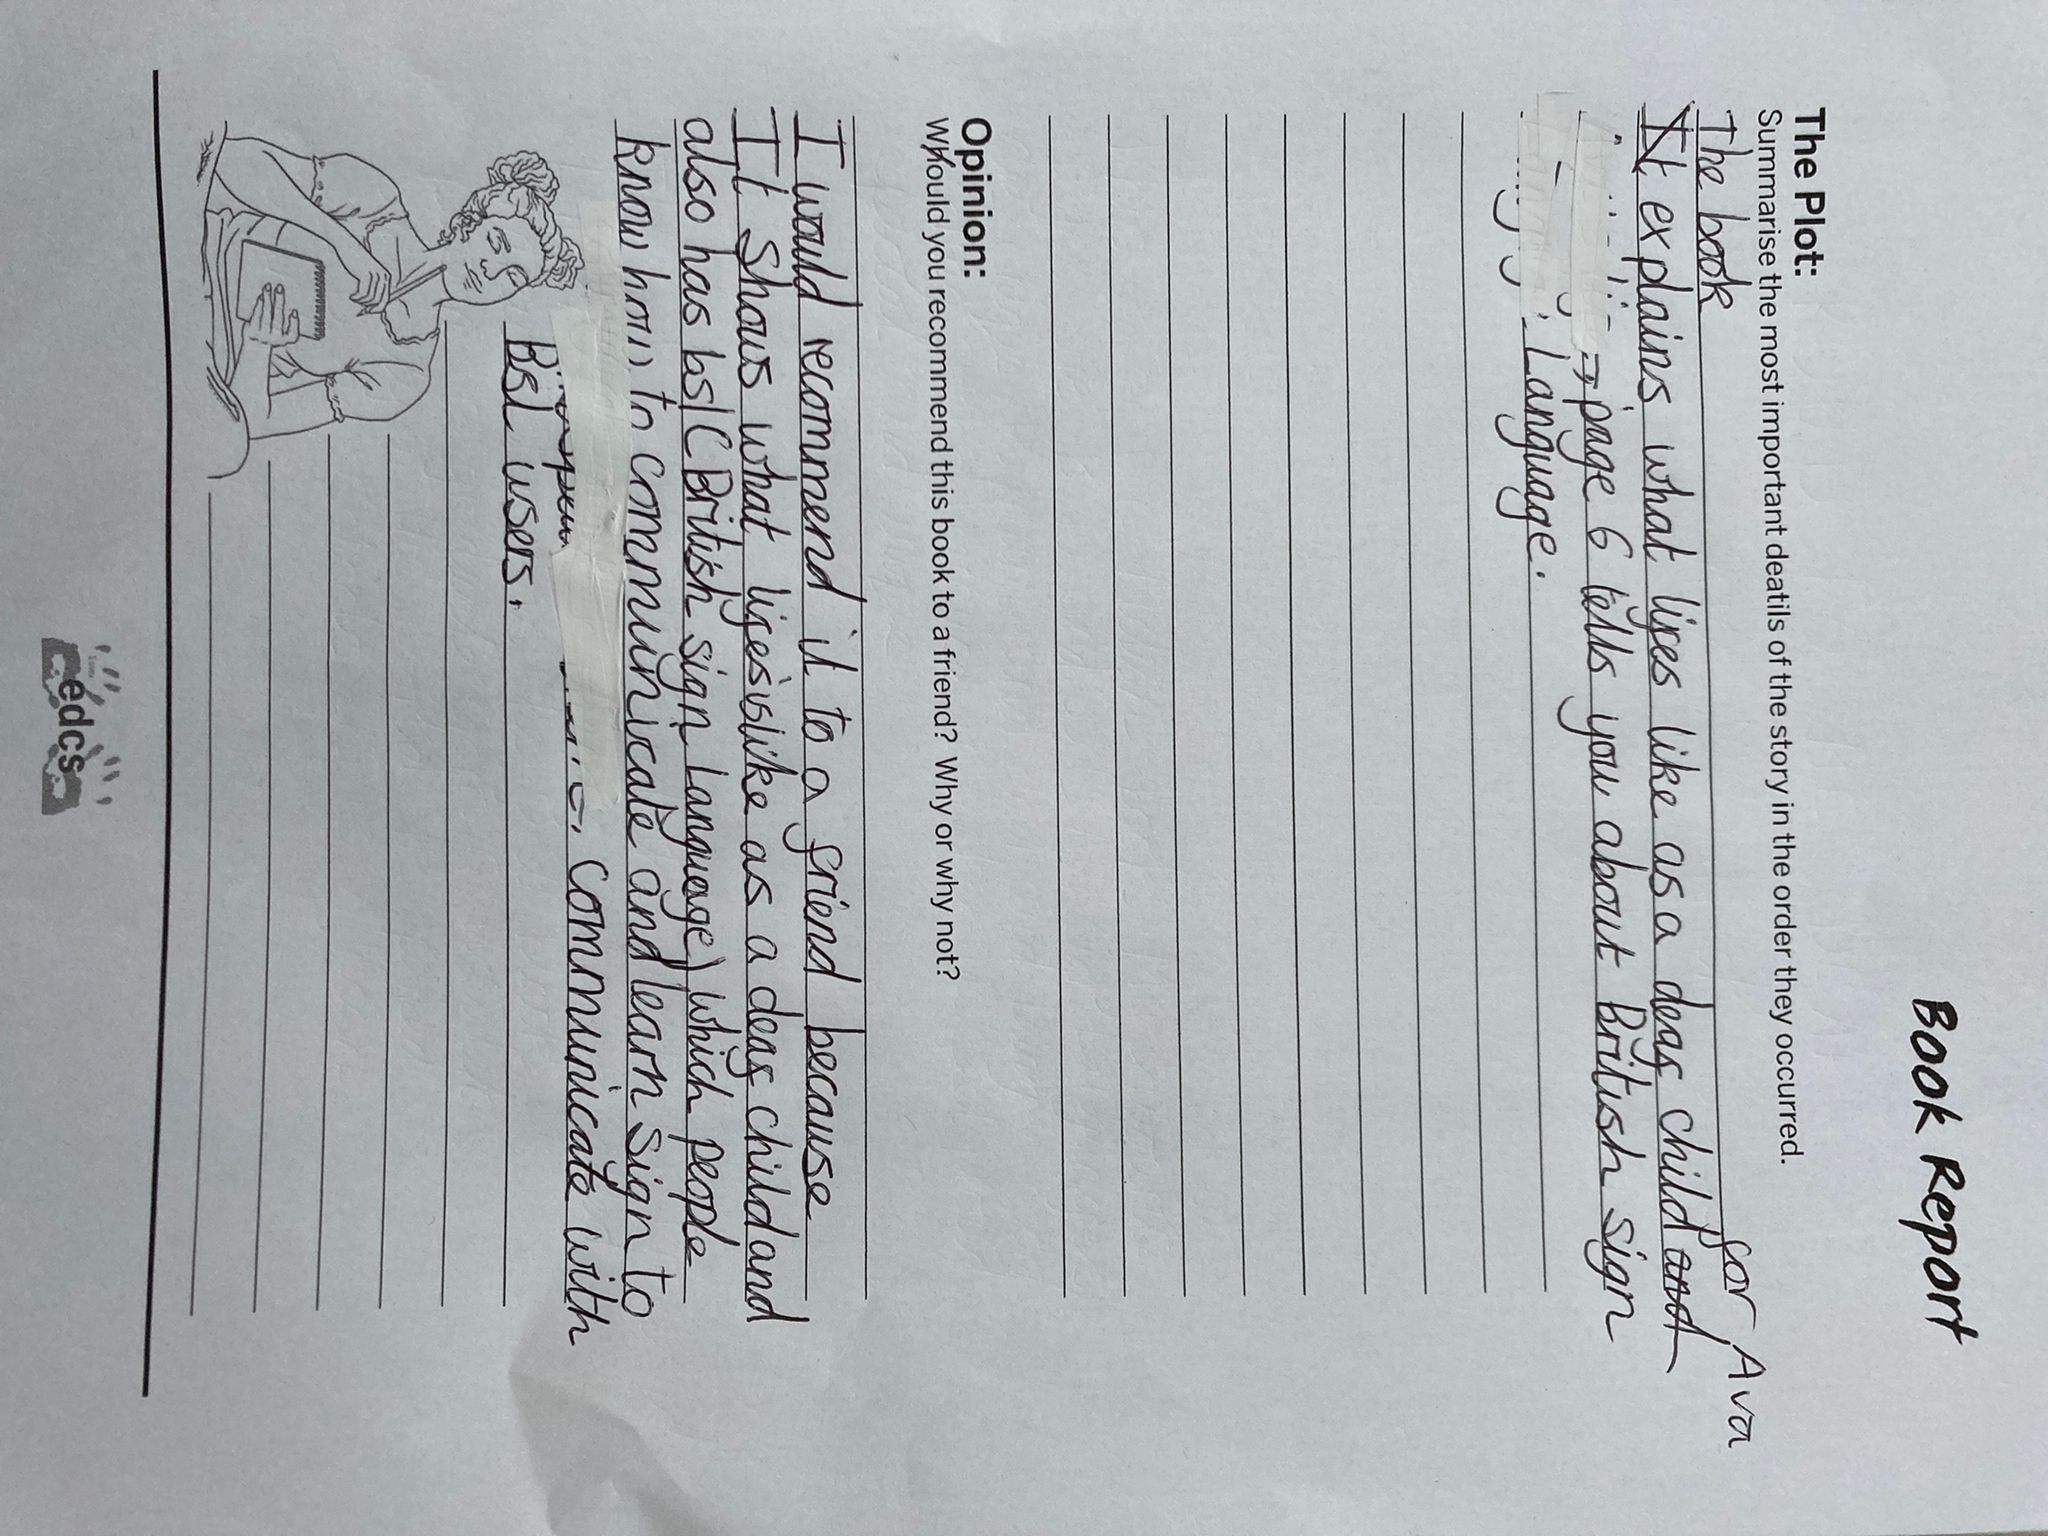 BOOK REPORT
The Plot:
Summarise the most important deatils of the story in the order they occurred.
The book for Ava
It explains what lifes like as a deaf child and
page 6 tells you about British sign
Language.
Opinion:
Whould you recommend this book to a friend? Why or why not?
I would recommend it to a friend because
It shows what lifesislike as a deaf child and
also has bsl (British sign Language) which people
know how to communicate and learn sign to
communicate with
Bsl users.
edcs